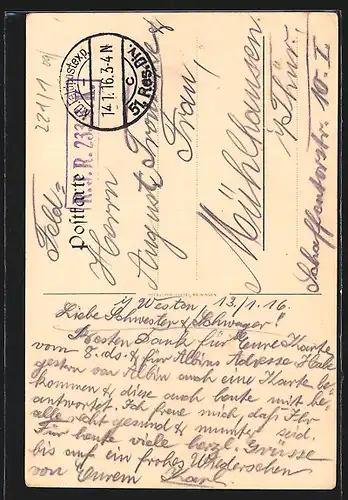 221/1 09
K.D. Feldpostexp.
14.1.16.3-4N
c
51. Res.Div.
R.I.R. 233
Feld=
Postkarte
Herrn
August &
Frau!
Mühlhausen
i/Thür.
Schaffentorstr. 10. I
i/ Westen 13/1. 16.
Liebe Schwester & Schwager!
Besten Dank für Eure Karte
vom 8. ds & für Albins Adresse. Habe
gestern von Albin auch eine Karte be-
kommen & diese auch heute mit be-
antwortet. Ich freue mich, daß Ihr
alle recht gesund & munter seid.
Für heute viele herzl. Grüsse
bis auf ein frohes Wiedersehen
von Eurem Karl